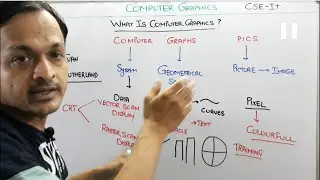 COMPUTER GRAPHICS
CSE-IT
WHAT IS COMPUTER GRAPHICS ?
COMPUTER GRAPHS PICS
SYSTEM GEOMETRICAL PICTURE → IMAGE
SUTHERLAND
CRT
DATA
VECTOR SCAN
DISPLAY
CURVES
PIXEL
TEXT
COLOURFULL
RASTER SCAN
TRAINING